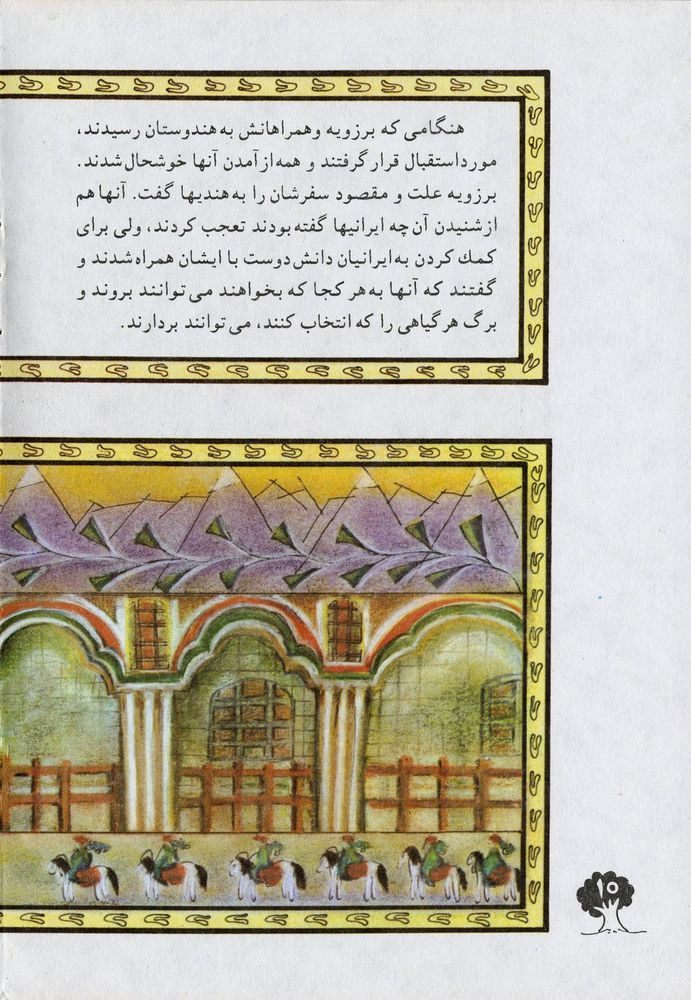 هنگامی که برزویه وهمراهانش به هندوستان رسیدند،
مورد استقبال قرار گرفتند و همه از آمدن آنها خوشحال شدند.
برزویه علت و مقصود سفرشان را به هندیها گفت. آنها هم
از شنیدن آن چه ایرانیها گفته بودند تعجب کردند، ولی برای
کمك کردن به ایرانیان دانش دوست با ایشان همراه شدند و
گفتند که آنها به هر کجا که بخواهند می توانند بروند و
برگ هر گیاهی را که انتخاب کنند، می توانند بردارند.
۱۵